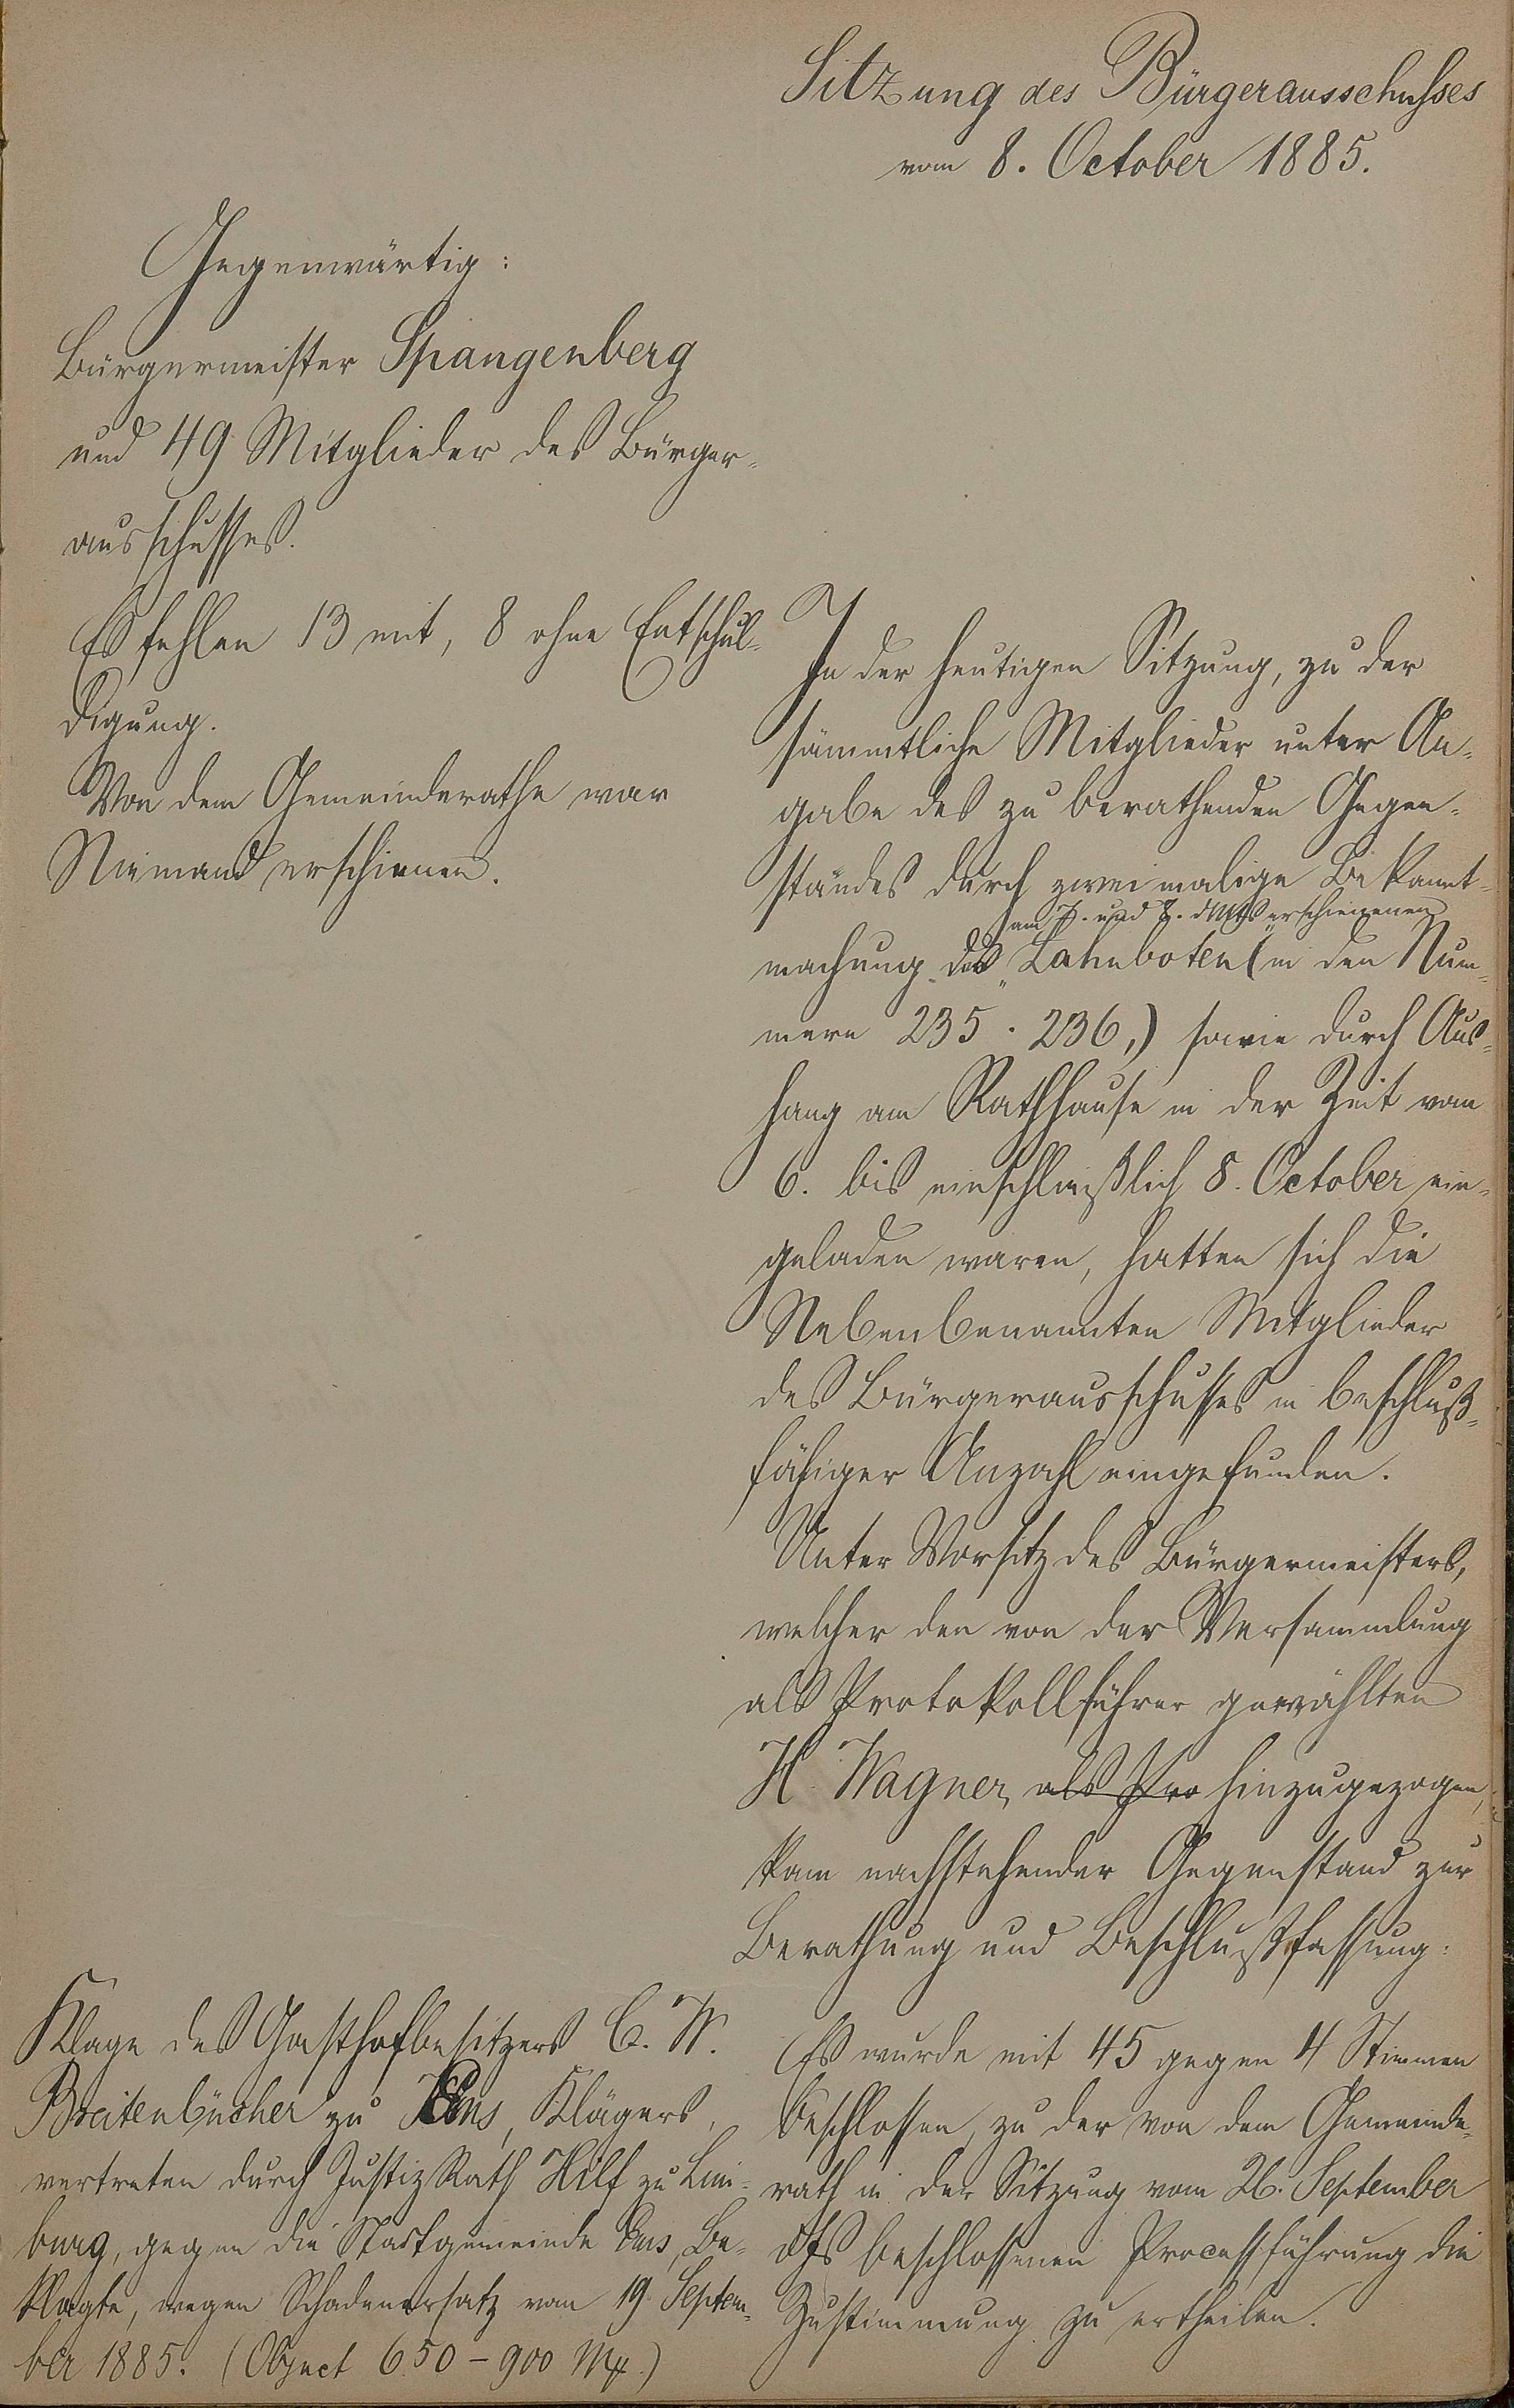 Sitzung des Bürgerausschusses
vom 8. October 1885.
Gegenwärtig:
Bürgermeister Spangenberg
und 49 Mitglieder des Bürger-
ausschusses.
Es fehlen 13 mit, 8 ohne Entschul-
digung.
Von dem Gemeinderathe war
Niemand erschienen.
In der heutigen Sitzung, zu der
sämmtliche Mitglieder unter An-
gabe des zu berathenden Gegen-
standes durch zweimalige Bekannt-
am 7. und 8. dMts erschienenen
machung des "Lahnboten (in den Num-
mern 235 · 236,) sowie durch Aus-
hang am Rathhause in der Zeit vom
6. bis einschließlich 8. October ein-
geladen waren, hatten sich die
Nebenbenannten Mitglieder
des Bürgerausschusses in beschluß-
fähiger Anzahl eingefunden.
Unter Vorsitz des Bürgermeisters,
welcher den von der Versammlung
als Protokollführer gewählten
H. Wagner, als Pro hinzugezogen,
kam nachstehender Gegenstand zur
Berathung und Beschlußfassung:
Klage des Gasthofbesitzers C. W.
Breitenbücher zu Ems, Klägers,
vertreten durch JustizRath Hilf zu Lim-
burg, gegen die Stadtgemeinde Ems, Be-
klagte, wegen Schadenersatz vom 19. Septem-
ber 1885. (Object 650 - 900 Mk.)
Es wurde mit 45 gegen 4 Stimmen
beschlossen, zu der von dem Gemeinde-
rath in der Sitzung vom 26. September
dJs beschlossenen Processführung die
Zustimmung zu ertheilen.